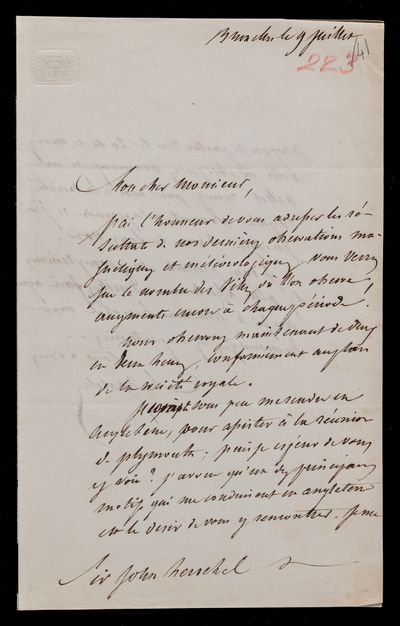 Bruxelles le 9 Juillet
41
223
Mon cher Monsieur,
j'ai l'honneur de vous adresser les ré-
sultats de nos dernières observations ma-
gnétiques et météorologiques. vous verrez
que le nombre des villes où l'on observe,
augmente encore à chaque période.
nous observons maintenant de deux
en deux heures, conformément au plan
de la société royale.
vous peu me rendre en
angleterre, pour assister à la réunion
de plymouth; puis je espérer de vous
y voir? j'avoue qu'un des principaux
motifs qui me conduisent en angleterre
est le desir de vous y rencontrer. je me
Sir John herschel